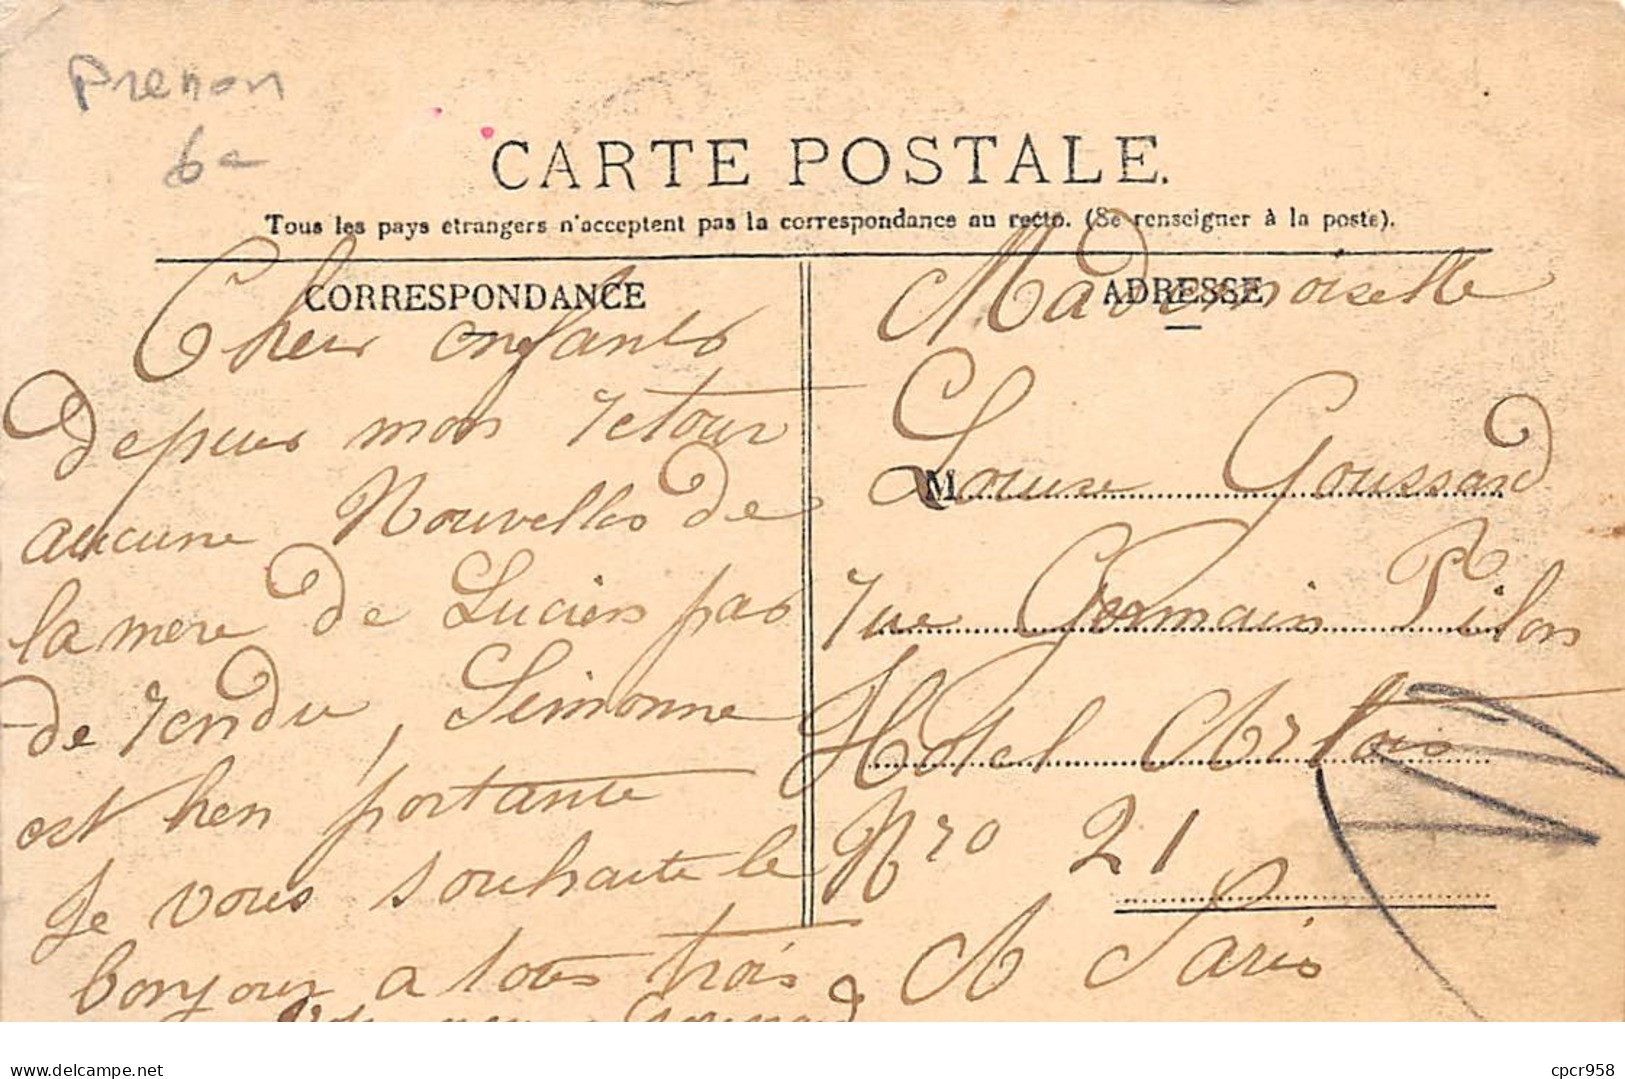 Prenon
6e
CARTE POSTALE.
Tous les pays étrangers n'acceptent pas la correspondance au recto. (Se renseigner à la poste).
CORRESPONDANCE
Cheer enfants
depuis mon retour
aucune Nouvelles de
la mere de Lucien pas
de rendu, Simonne
est bien portante
Je vous souhaite le
bonjour a tous trois
Goussard
ADRESSE
Mademoiselle
M Louise Goussard
rue Germain Pilon
Hotel Artois
Nro 21
A Paris
www.delcampe.net
cpcr958